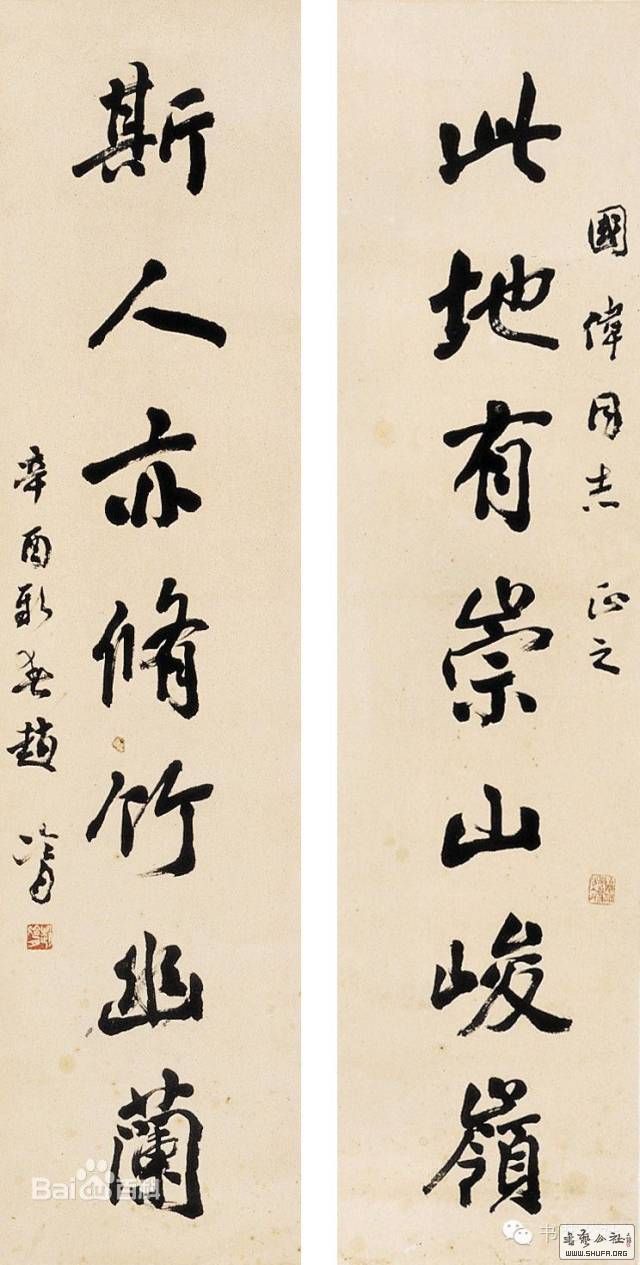 國偉同志 正之
此地有崇山峻嶺
斯人亦脩竹幽蘭
辛酉新春趙冷月
Bai 百科
书
書藝公社
WWW.SHUFA.ORG